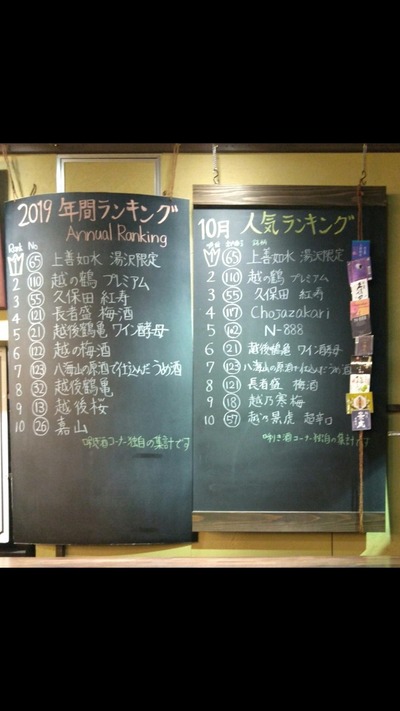 2019 年間ランキング
Annual Ranking
Rank No
1 65 上善如水 湯沢限定
2 110 越の鶴 プレミアム
3 55 久保田 紅寿
4 121 長者盛 梅酒
5 21 越後鶴亀 ワイン酵母
6 122 越の梅酒
7 123 八海山の原酒で仕込んだうめ酒
8 32 越後鶴亀
9 13 越後桜
10 26 嘉山
唎き酒コーナー独自の集計です
10月 人気ランキング
1 65 上善如水 湯沢限定
2 110 越の鶴 プレミアム
3 55 久保田 紅寿
4 117 Chojazakari
5 112 N-888
6 21 越後鶴亀 ワイン酵母
7 123 八海山の原酒で仕込んだうめ酒
8 121 長者盛 梅酒
9 18 越乃寒梅
10 57 越乃景虎 超辛口
唎き酒コーナー独自の集計です